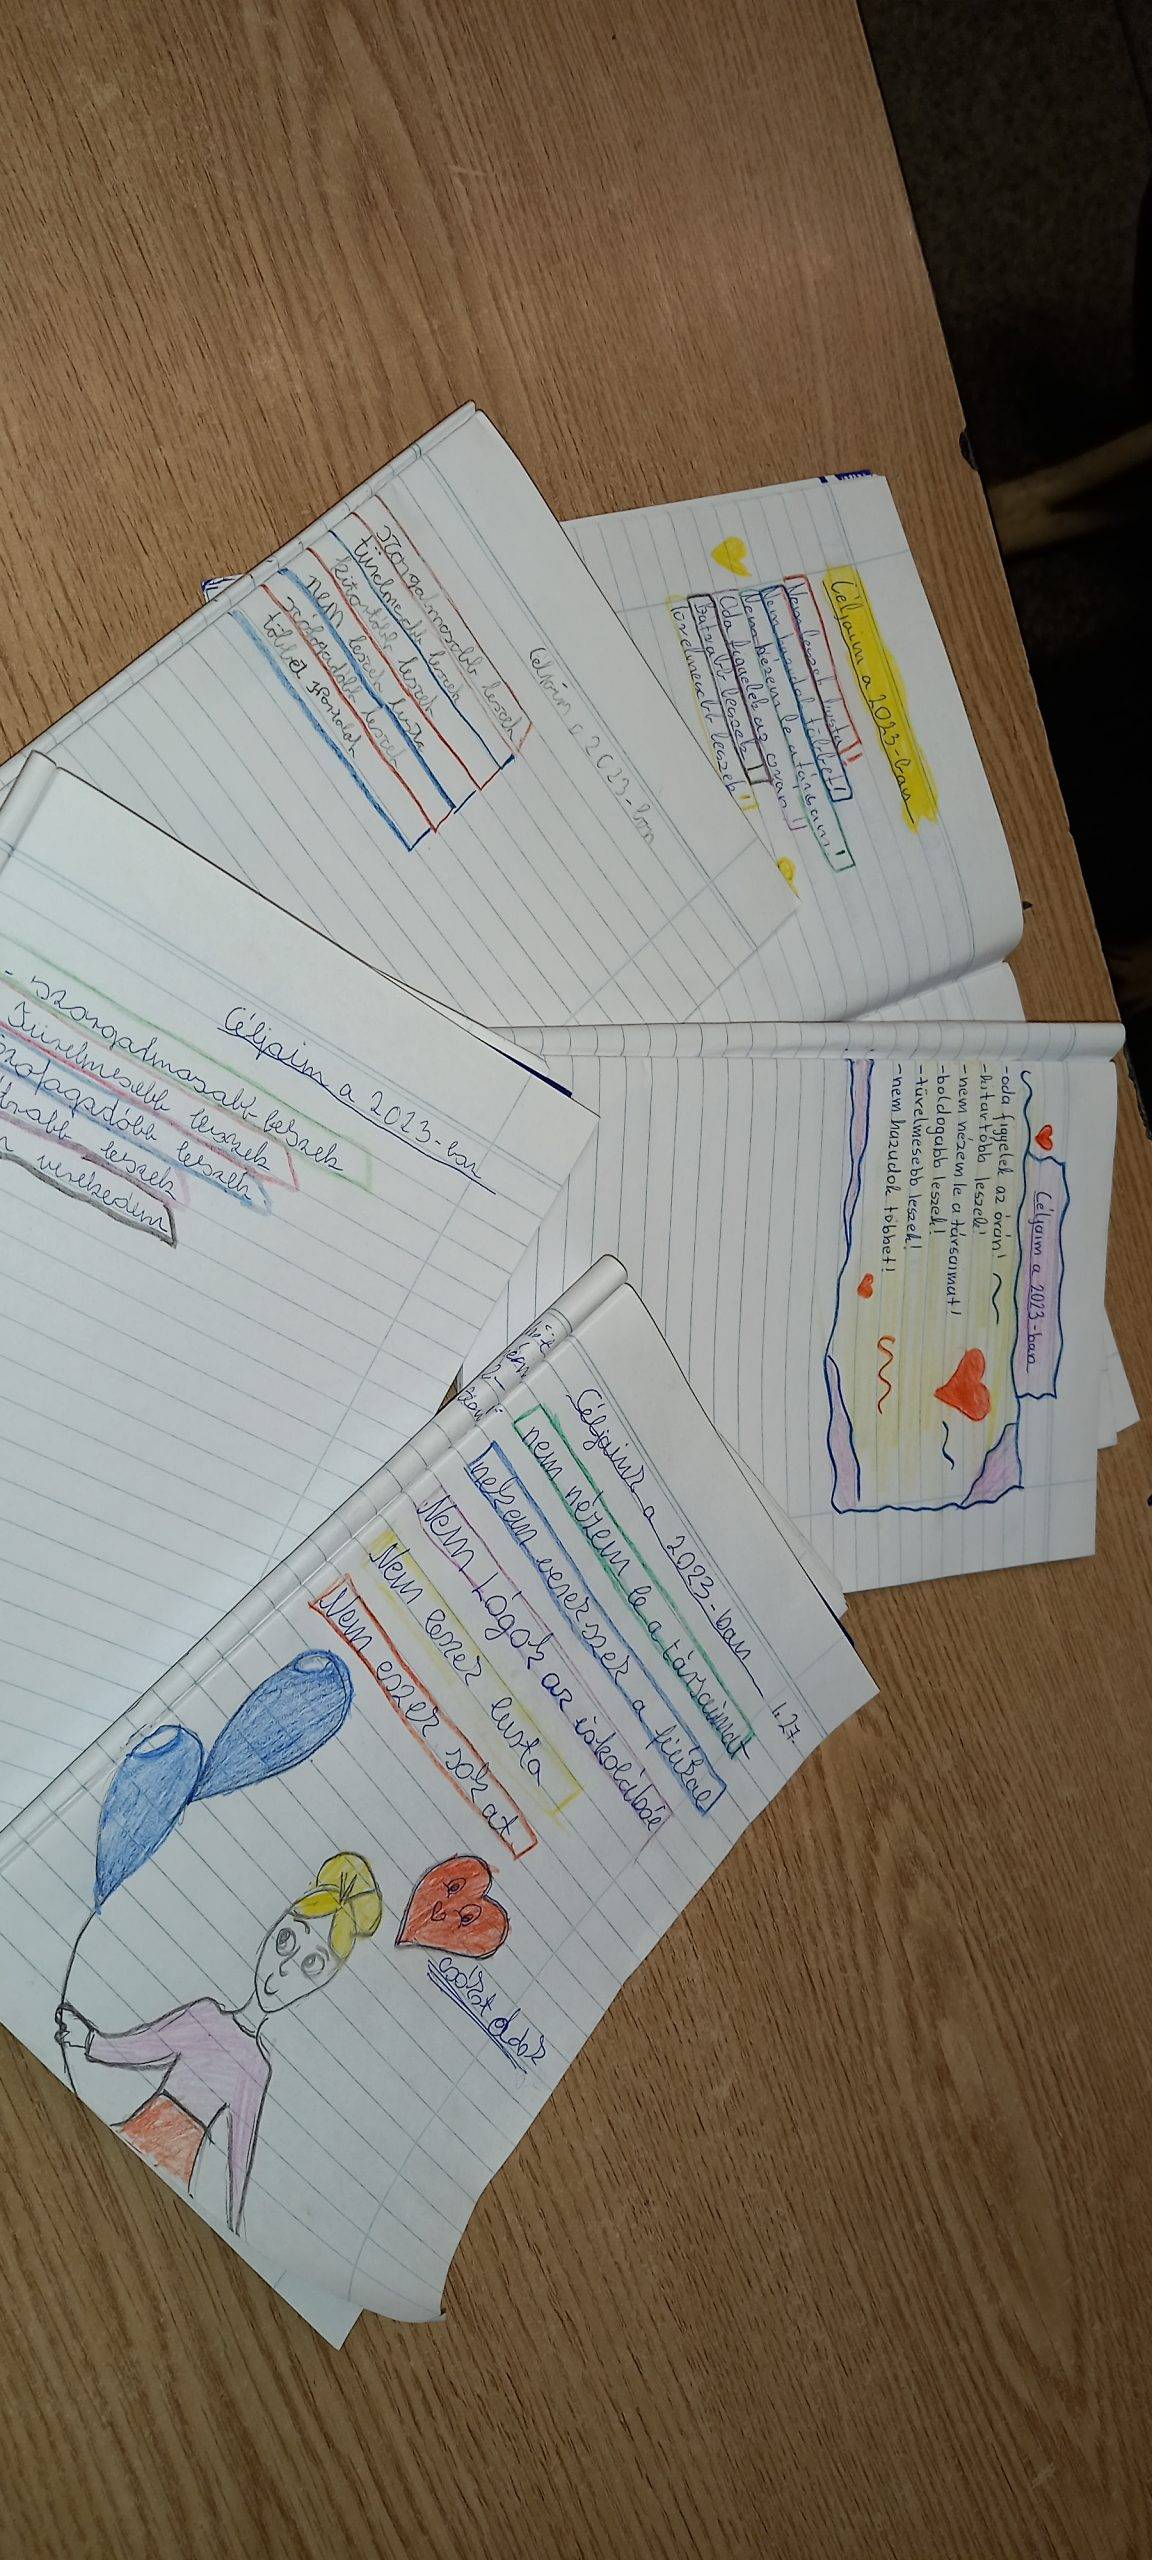 Céljaim a 2023-ban
Nem leszek lusta!
Nem hazudok többet!
Nem nézem le a társaim!
Oda figyelek az órán!
Bátrabb leszek!
Türelmesebb leszek!
Céljaim a 2023-ban
-oda figyelek az órán!
-kitartóbb leszek!
-nem nézem le a társaimat!
-boldogabb leszek!
-türelmesebb leszek!
-nem hazudok többet!
Céljaim a 2023-ban
szorgalmasabb leszek
türelmesebb leszek
kitartóbb leszek
nem leszek lusta
többet
Céljaim a 2023-ban
- szorgalmasabb leszek
Türelmesebb leszek
leszek
leszek
verekedem
1.27.
Céljaink a 2023-ban
nem nézem le a társaimat
a fiúkal
Nem Lógok az iskolából
Nem leszek lusta
Nem eszek sokat